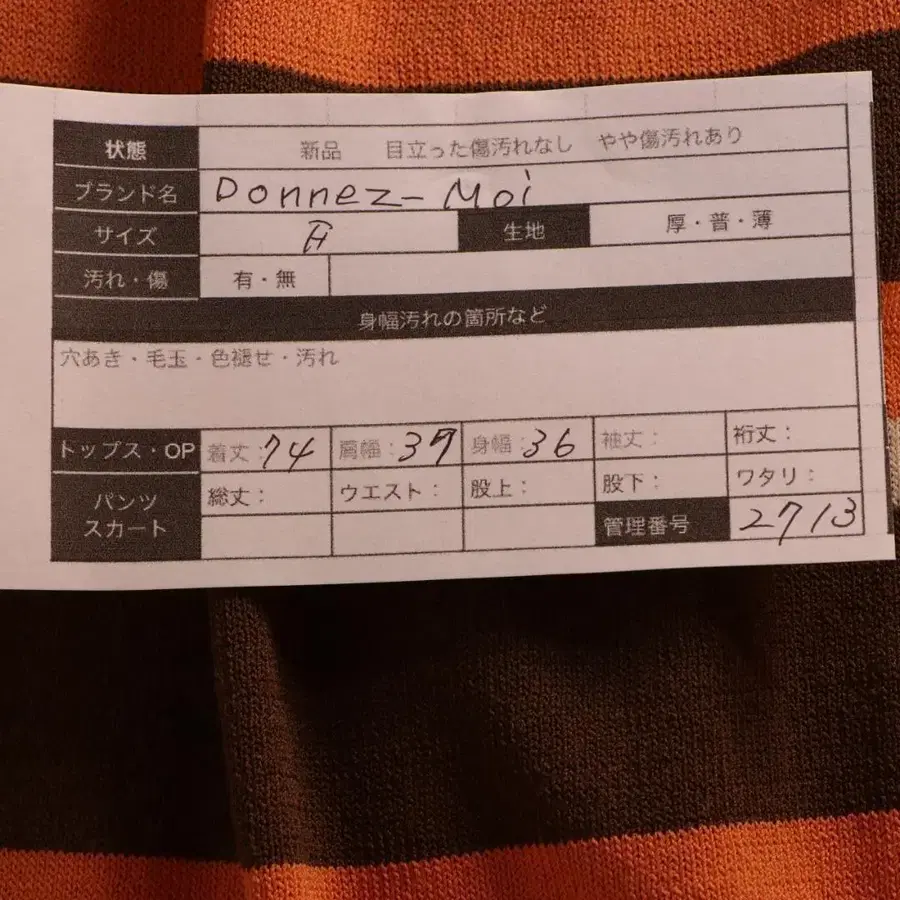 状態 新品 目立った傷汚れなし やや傷汚れあり
ブランド名 Donnez-Moi
サイズ 生地 厚・普・薄
汚れ・傷 有・無
身幅汚れの箇所など
穴あき・毛玉・色褪せ・汚れ
トップス・OP 着丈:74 肩幅: 身幅:36 袖丈: 裄丈:
パンツ
スカート
総丈: ウエスト: 股上: 股下: ワタリ:
管理番号 2713